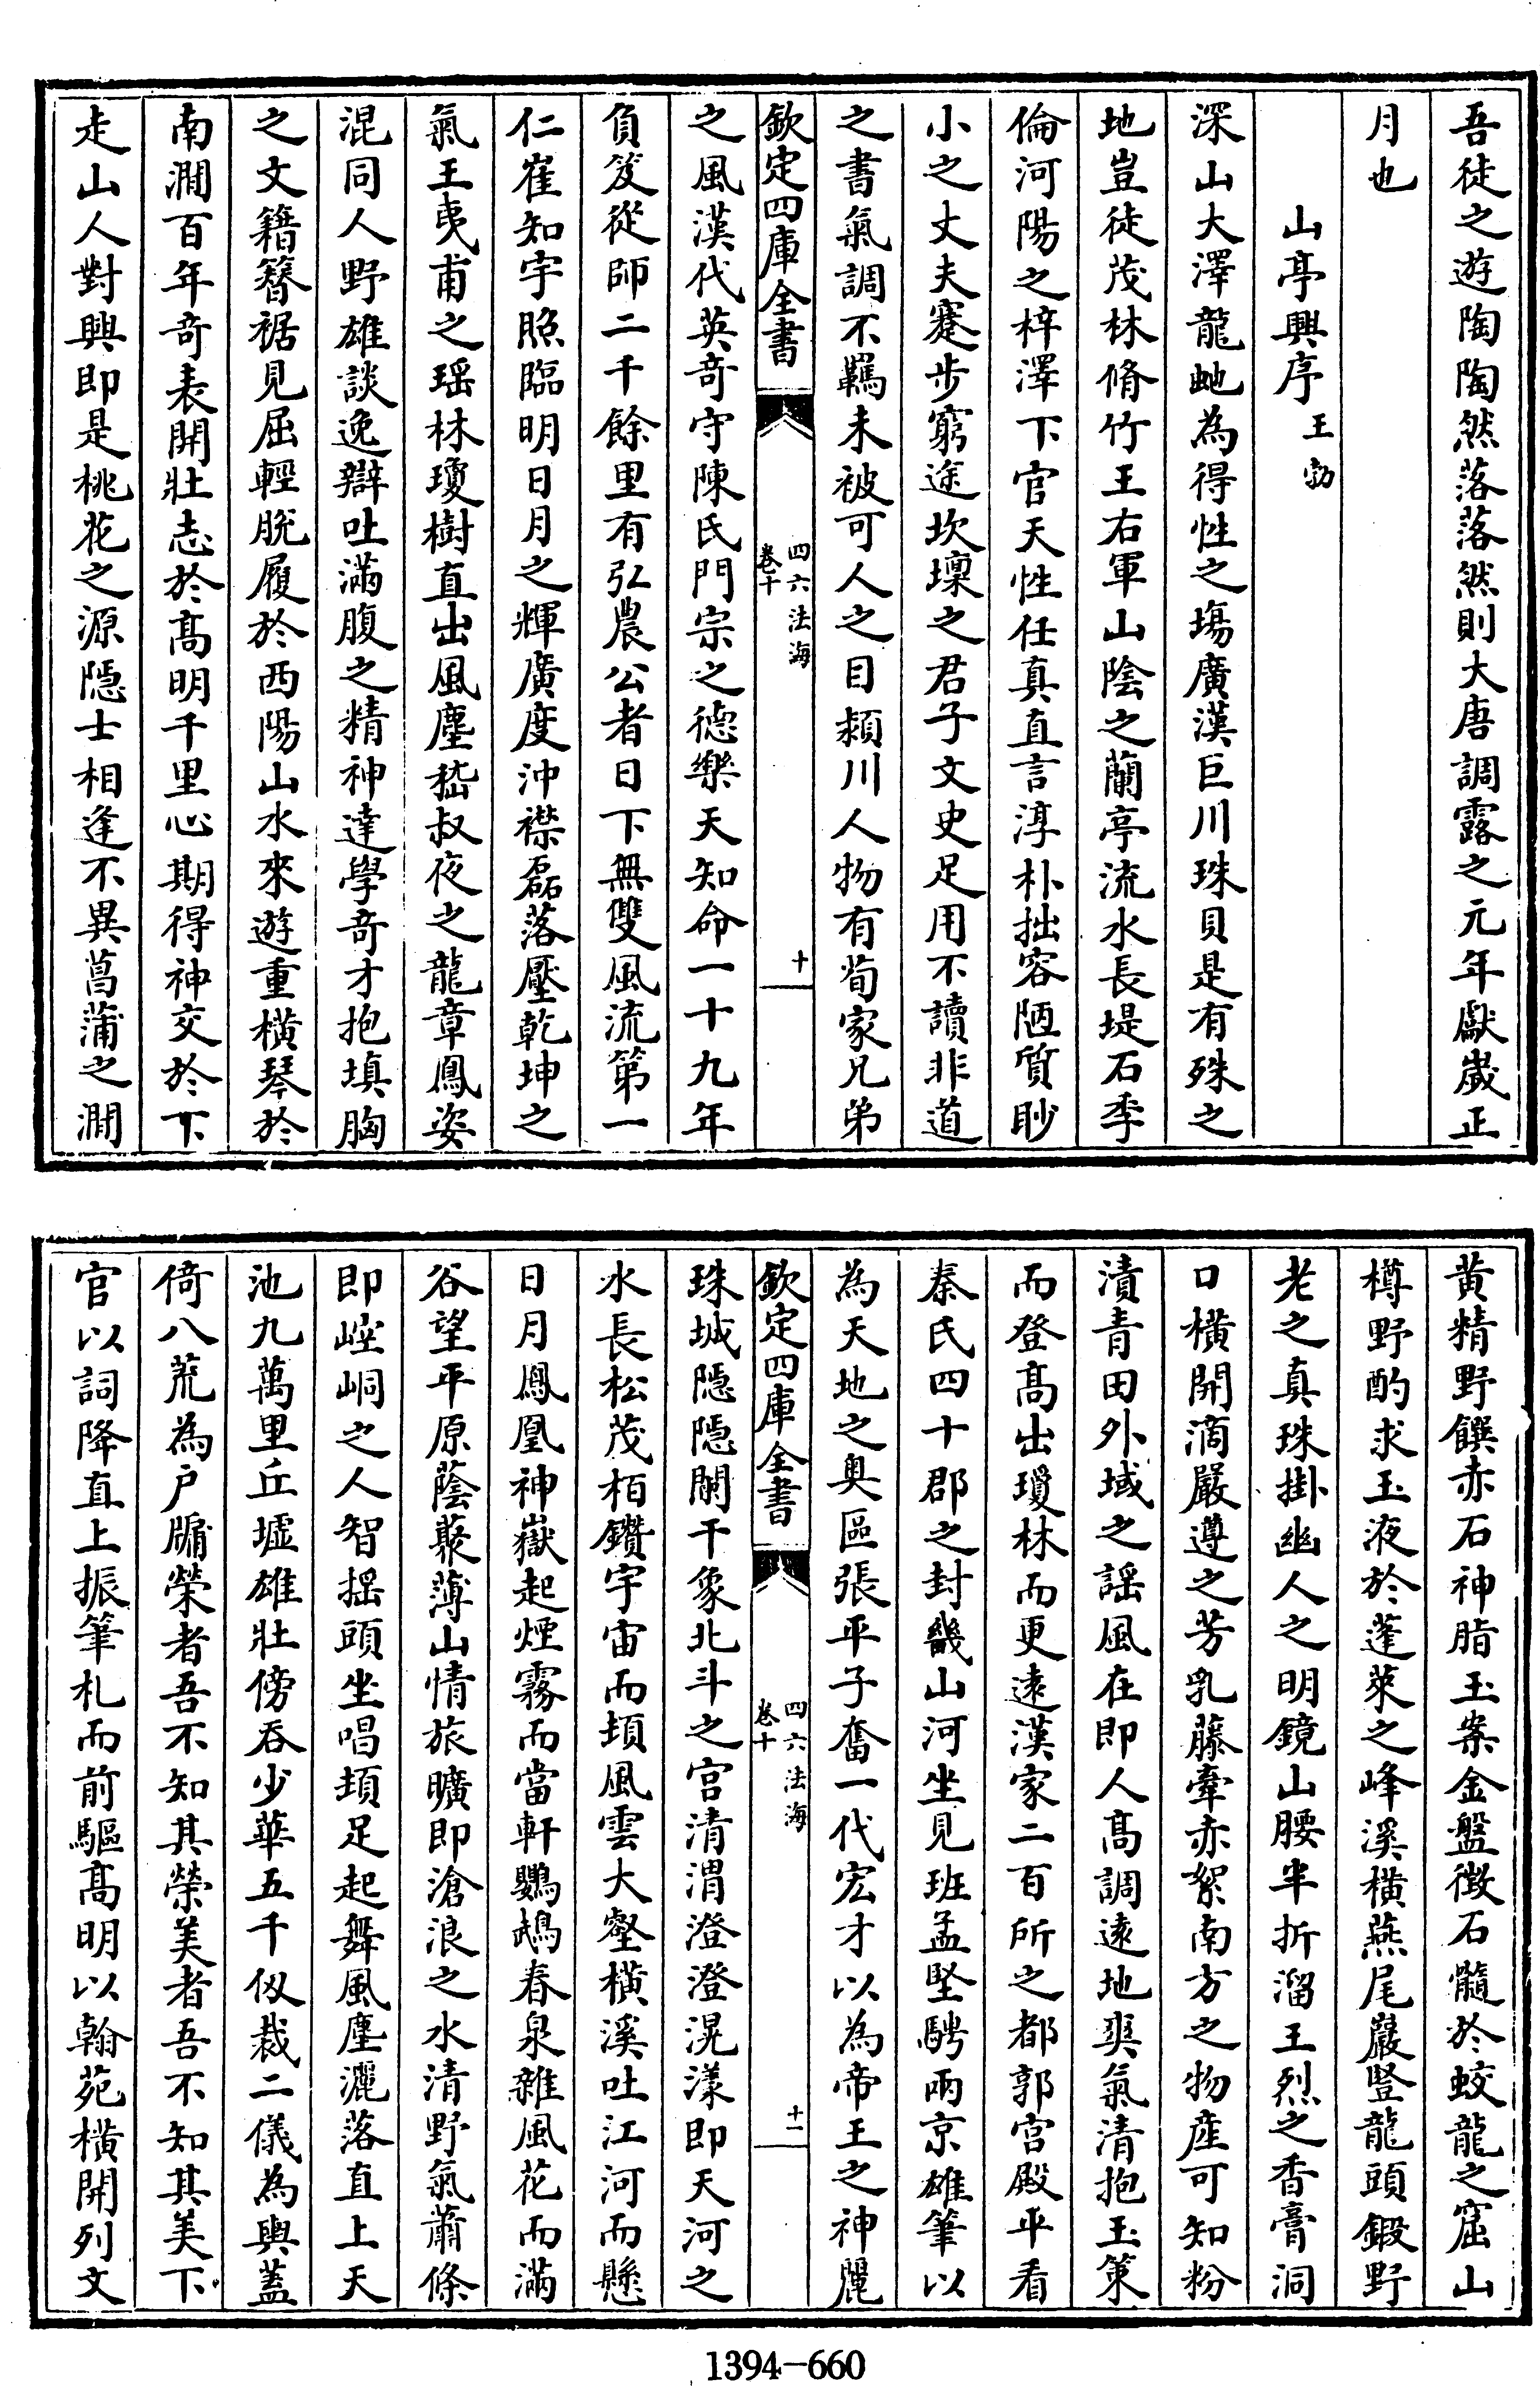 吾徒之遊陶陶然落落然則大唐調露之元年獻歲正
月也
山亭興序王勃
深山大澤龍虵為得性之塲廣漢巨川珠貝是有殊之
地豈徒茂林脩竹王右軍山陰之蘭亭流水長堤石季
倫河陽之梓澤下官天性任真直言淳朴拙容陋質眇
小之丈夫蹇步窮途坎壈之君子文史足用不讀非道
之書氣調不羈未被可人之目潁川人物有荀家兄弟
欽定四庫全書
四六法海
卷十
十
之風漢代英奇守陳氏門宗之德樂天知命一十九年
負笈從師二千餘里有弘農公者日下無雙風流第一
仁崔知宇照臨明日月之輝廣度沖襟磊落壓乾坤之
氣王夷甫之瑶林瓊樹直出風塵嵇叔夜之龍章鳳姿
混同人野雄談逸辯吐滿腹之精神達學奇才抱填胸
之文籍簪裾見屈輕脫履於西陽山水來遊重橫琴於
南澗百年奇表開壯志於高明千里心期得神交於下
走山人對興即是桃花之源隱士相逢不異菖蒲之澗
黄精野饌赤石神脂玉案金盤徴石髓於蛟龍之窟山
樽野酌求玉液於蓬萊之峰溪橫燕尾巖豎龍頭鍛野
老之真珠掛幽人之明鏡山腰半折溜王烈之香膏洞
口橫開滴嚴遵之芳乳藤牽赤絮南方之物産可知粉
漬青田外域之謡風在即人高調遠地爽氣清抱玉策
而登高出瓊林而更遠漢家二百所之都郭宫殿平看
秦氏四十郡之封畿山河坐見班孟堅騁兩京雄筆以
為天地之奥區張平子奮一代宏才以為帝王之神麗
欽定四庫全書
四六法海
卷十
十一
珠城隱隱闌干象北斗之宫清渭澄澄滉漾即天河之
水長松茂柏鑽宇宙而頓風雲大壑橫溪吐江河而懸
日月鳳凰神嶽起煙霧而當軒鸚鵡春泉雜風花而滿
谷望平原蔭藂薄山情旅曠即滄浪之水清野氣蕭條
即崆峒之人智摇頭坐唱頓足起舞風塵灑落直上天
池九萬里丘墟雄壯傍吞少華五千仭裁二儀為輿蓋
倚八荒為户牖榮者吾不知其榮美者吾不知其美下
官以詞降直上振筆札而前驅高明以翰苑橫開列文
1394-660